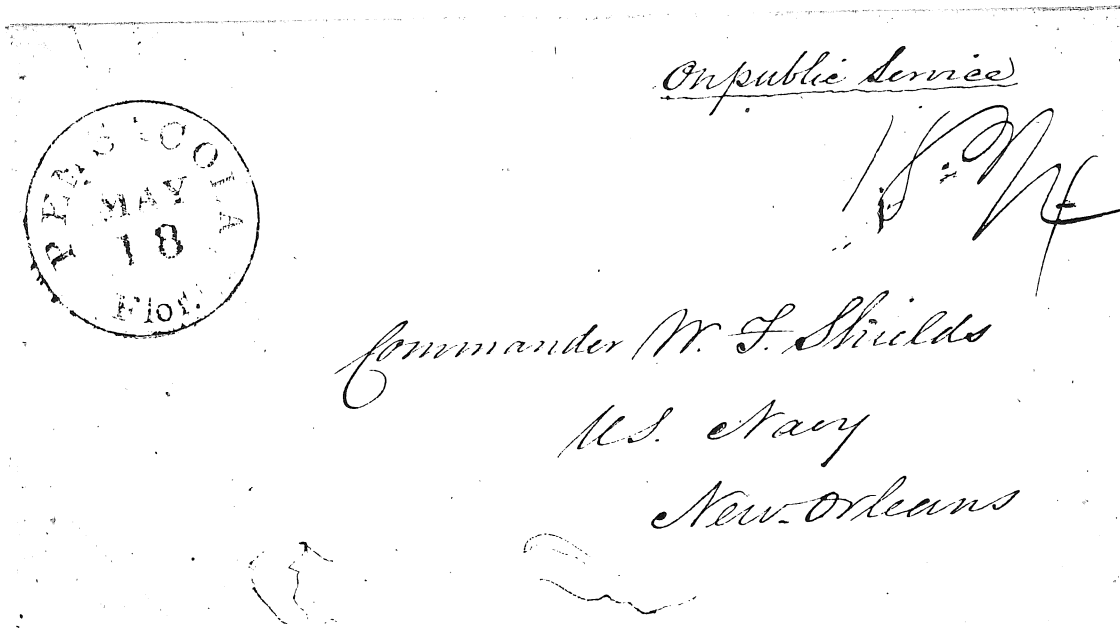 On public Service
PENSACOLA
MAY
18
Flor.
Commander W. F. Shields
U.S. Navy
New-Orleans